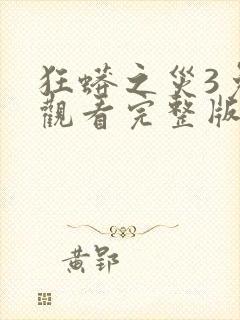 狂蟒之災3
觀看完整版
黃郢